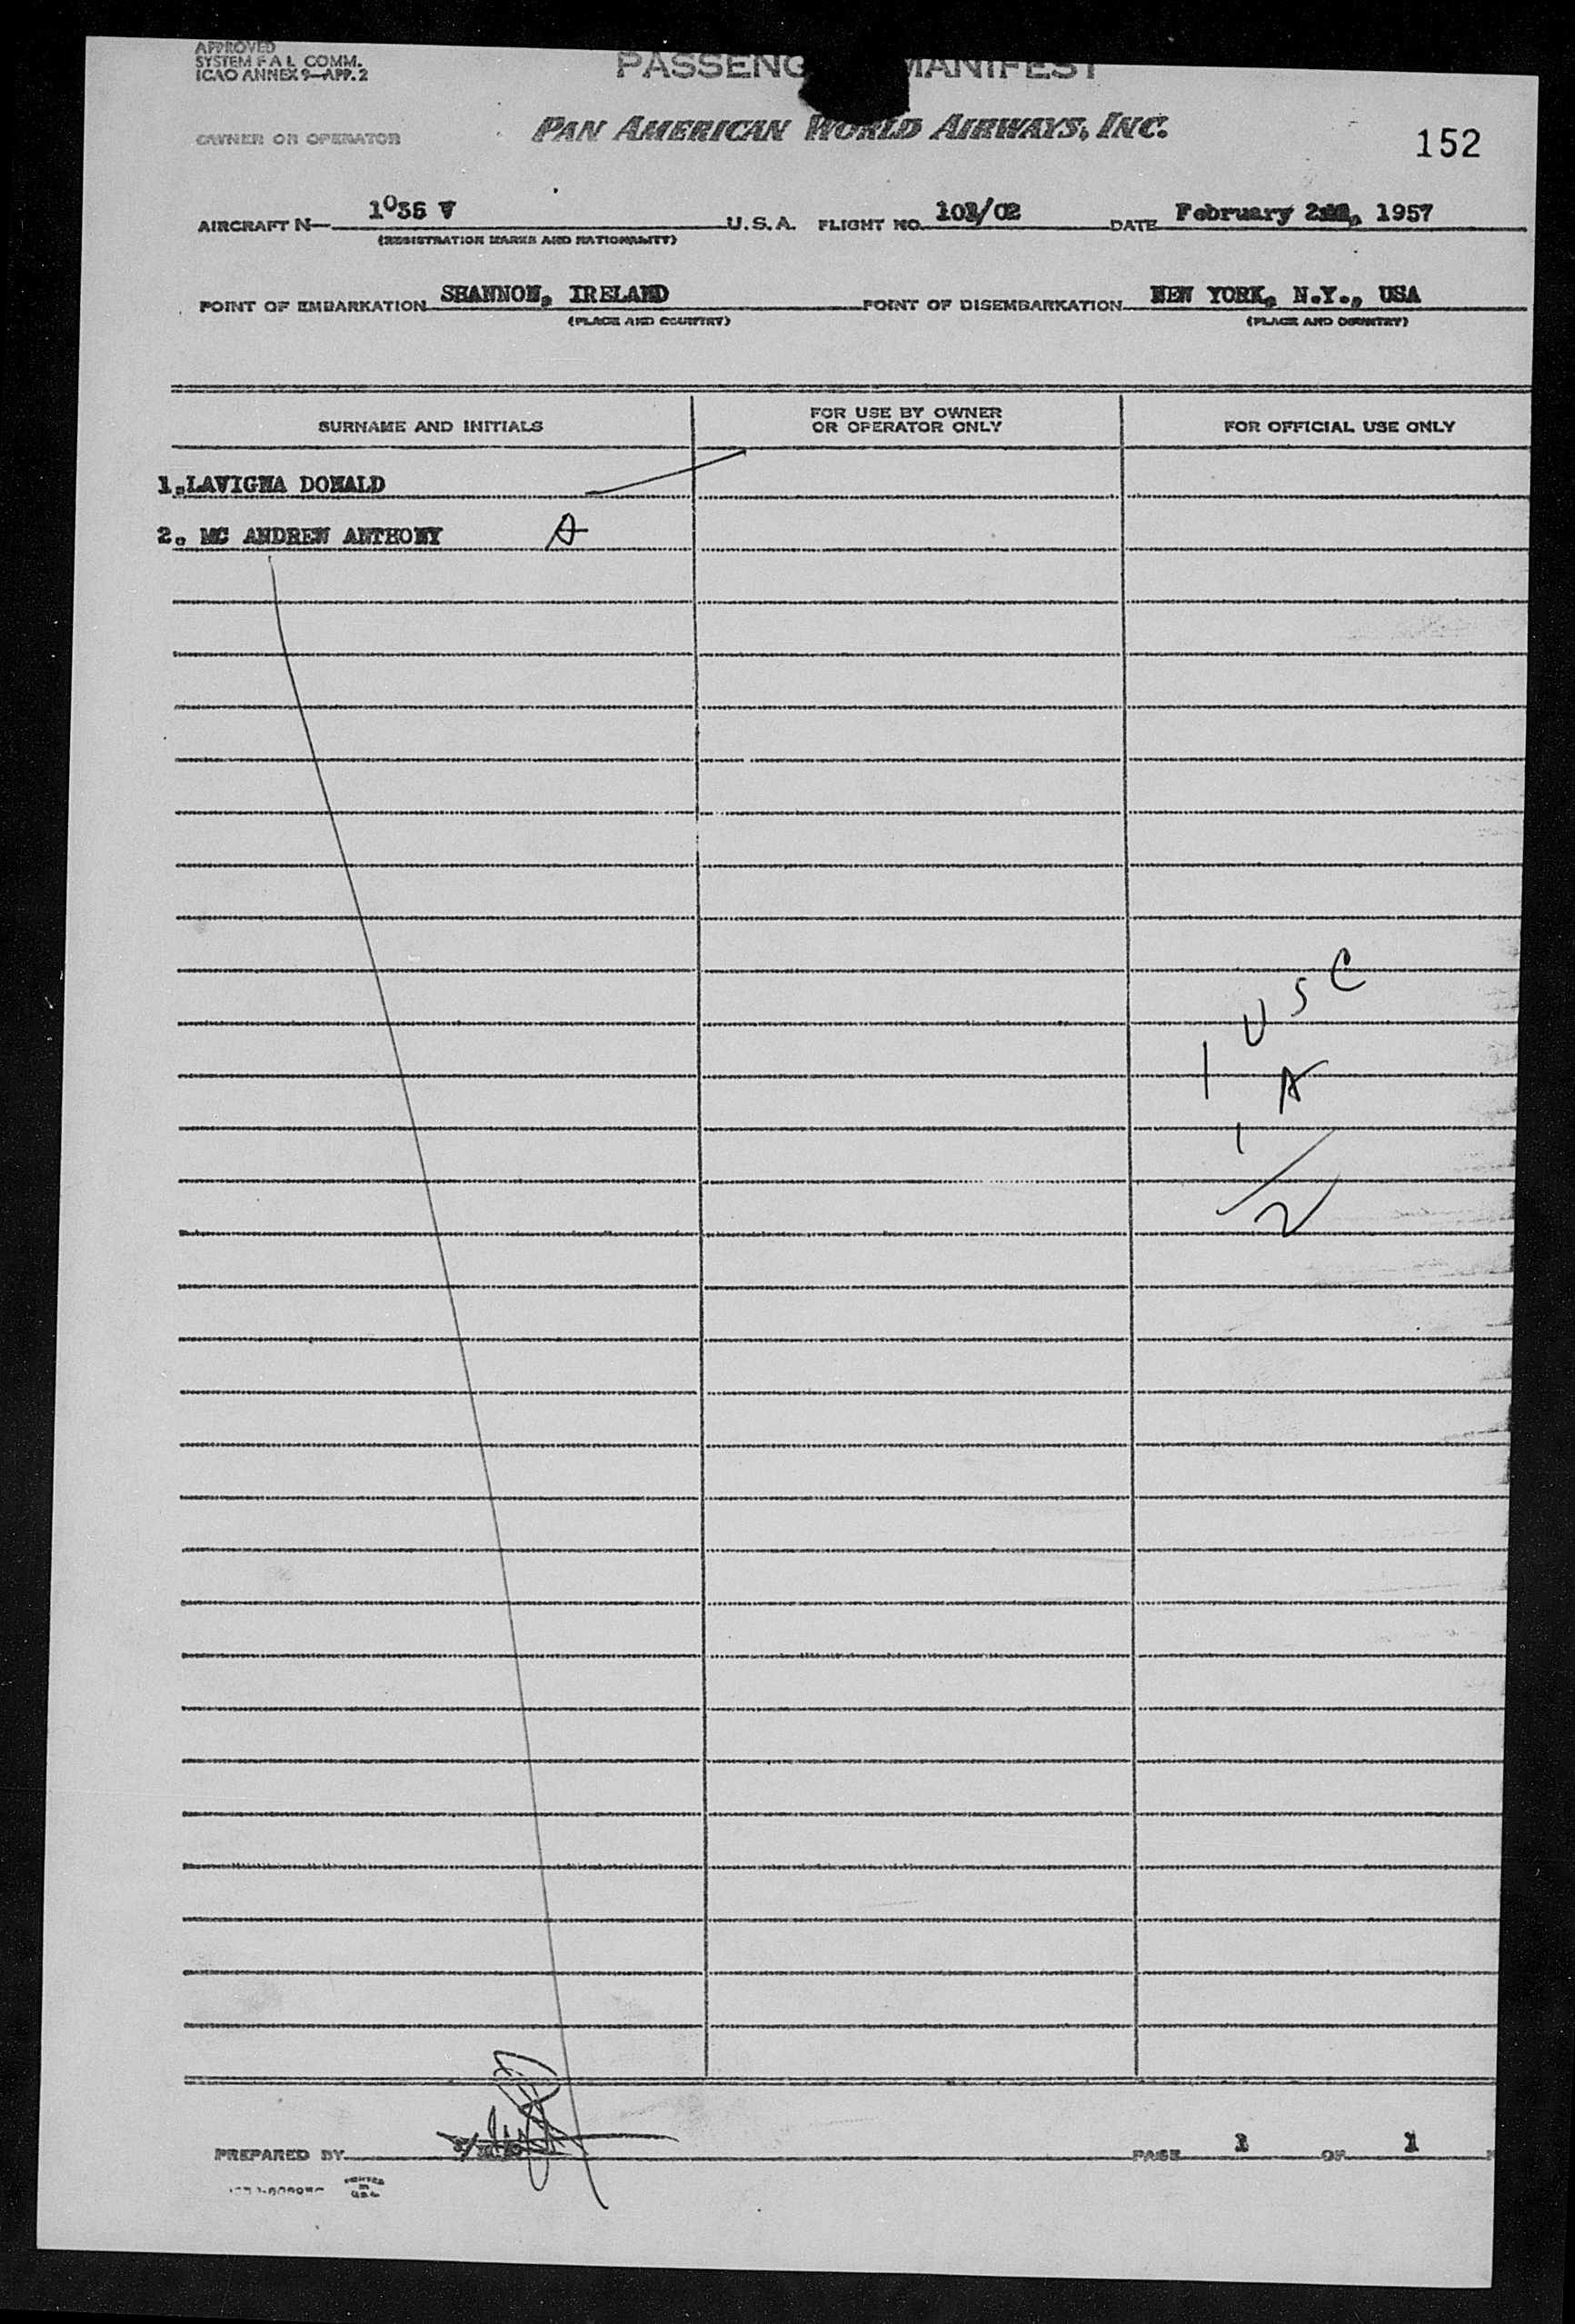 APPROVED
SYSTEM F A L COMM.
ICAO ANNEX 9—APP. 2
PASSENG MANIFEST
OWNER OR OPERATOR
PAN AMERICAN WORLD AIRWAYS, INC.
152
AIRCRAFT N— 1035 V U.S.A. FLIGHT NO. 101/02 DATE February 1957
(REGISTRATION MARKS AND NATIONALITY)
POINT OF EMBARKATION SHANNON, IRELAND POINT OF DISEMBARKATION NEW YORK, N.Y., USA
(PLACE AND COUNTRY) (PLACE AND COUNTRY)
SURNAME AND INITIALS FOR USE BY OWNER OR OPERATOR ONLY FOR OFFICIAL USE ONLY
1. LAVIGNA DONALD
2. MC ANDREW ANTHONY A
1 USC
1 A
2
PREPARED BY PAGE 1 OF 1
PRINTED
IN
U.S.A.